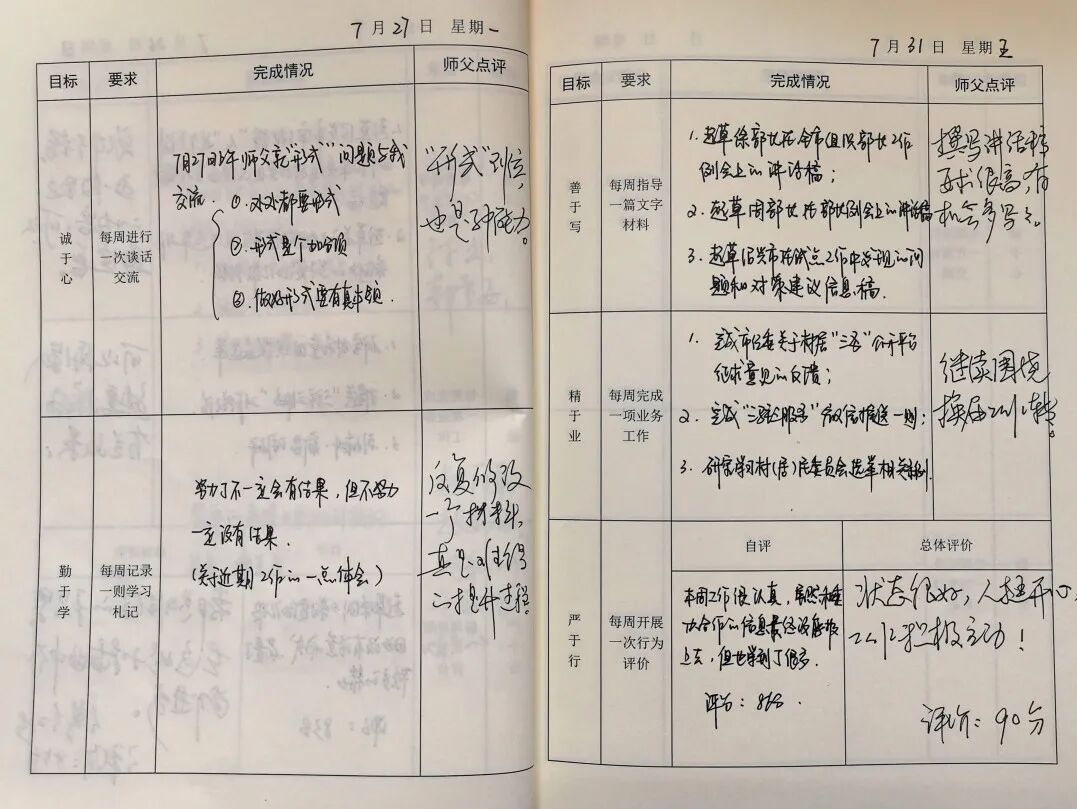 7月27日 星期一
目标 要求 完成情况 师父点评
诚于心
每周进行
一次谈话
交流
7月27日下午师父就"形式"问题与我
交流.
①处处都要形式
②形式是个加分项
③做好形式要有真本领.
"形式"到位,
也是一种能力。
勤于学
每周记录
一则学习
札记
努力了不一定会有结果,但不努力
一定没有结果.
(关于近期工作的一点体会)
反复修改
一个材料,
真是
的提升过程。
7月31日 星期五
目标 要求 完成情况 师父点评
善于写
每周指导
一篇文字
材料
1. 起草徐部长在全市组织部长工作
例会上的讲话稿;
2. 起草周部长在部长例会上的讲话稿
3. 起草绍兴市在试点工作中发现的问
题和对策建议信息稿.
撰写讲话稿
要求很高,有
机会多写写。
精于业
每周完成
一项业务
工作
1. 完成市纪委关于村居"三务"公开平台
征求意见的反馈;
2. 完成 微信推送一则;
3. 研究学习村(居)民委员会选举相关规则.
继续围绕
换届工作转。
严于行
每周开展
一次行为
评价
自评 总体评价
本周工作很认真,虽然
的信息最终没有报
上去,但也学到了很多.
评分:
状态很好,人挺开心,
工作积极主动!
评价:90分